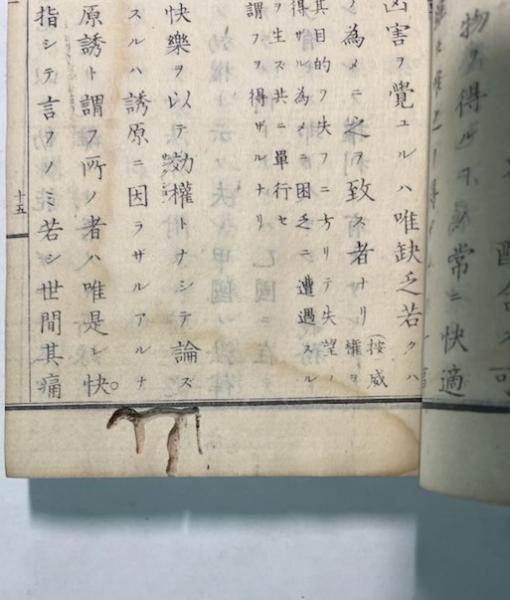 物ヲ得
常ニ快適
凶害ヲ覺ユルハ唯缺乏若クハ
為メニ之ヲ致ス者ナリ(按威權ヲ
其目的ヲ失フニ方リテ失望ノ
得ザル為メニ困乏ニ遭遇スル
ヲ生ズ共ニ單行セ
謂フヲ得ザルナリ
快樂ヲ以テ効權トナシテ論ズ
スルハ誘原ニ因ラザルアルナ
原誘ト謂フ所ノ者ハ唯是レ快
指シテ言フノミ若シ世間其痛
十五